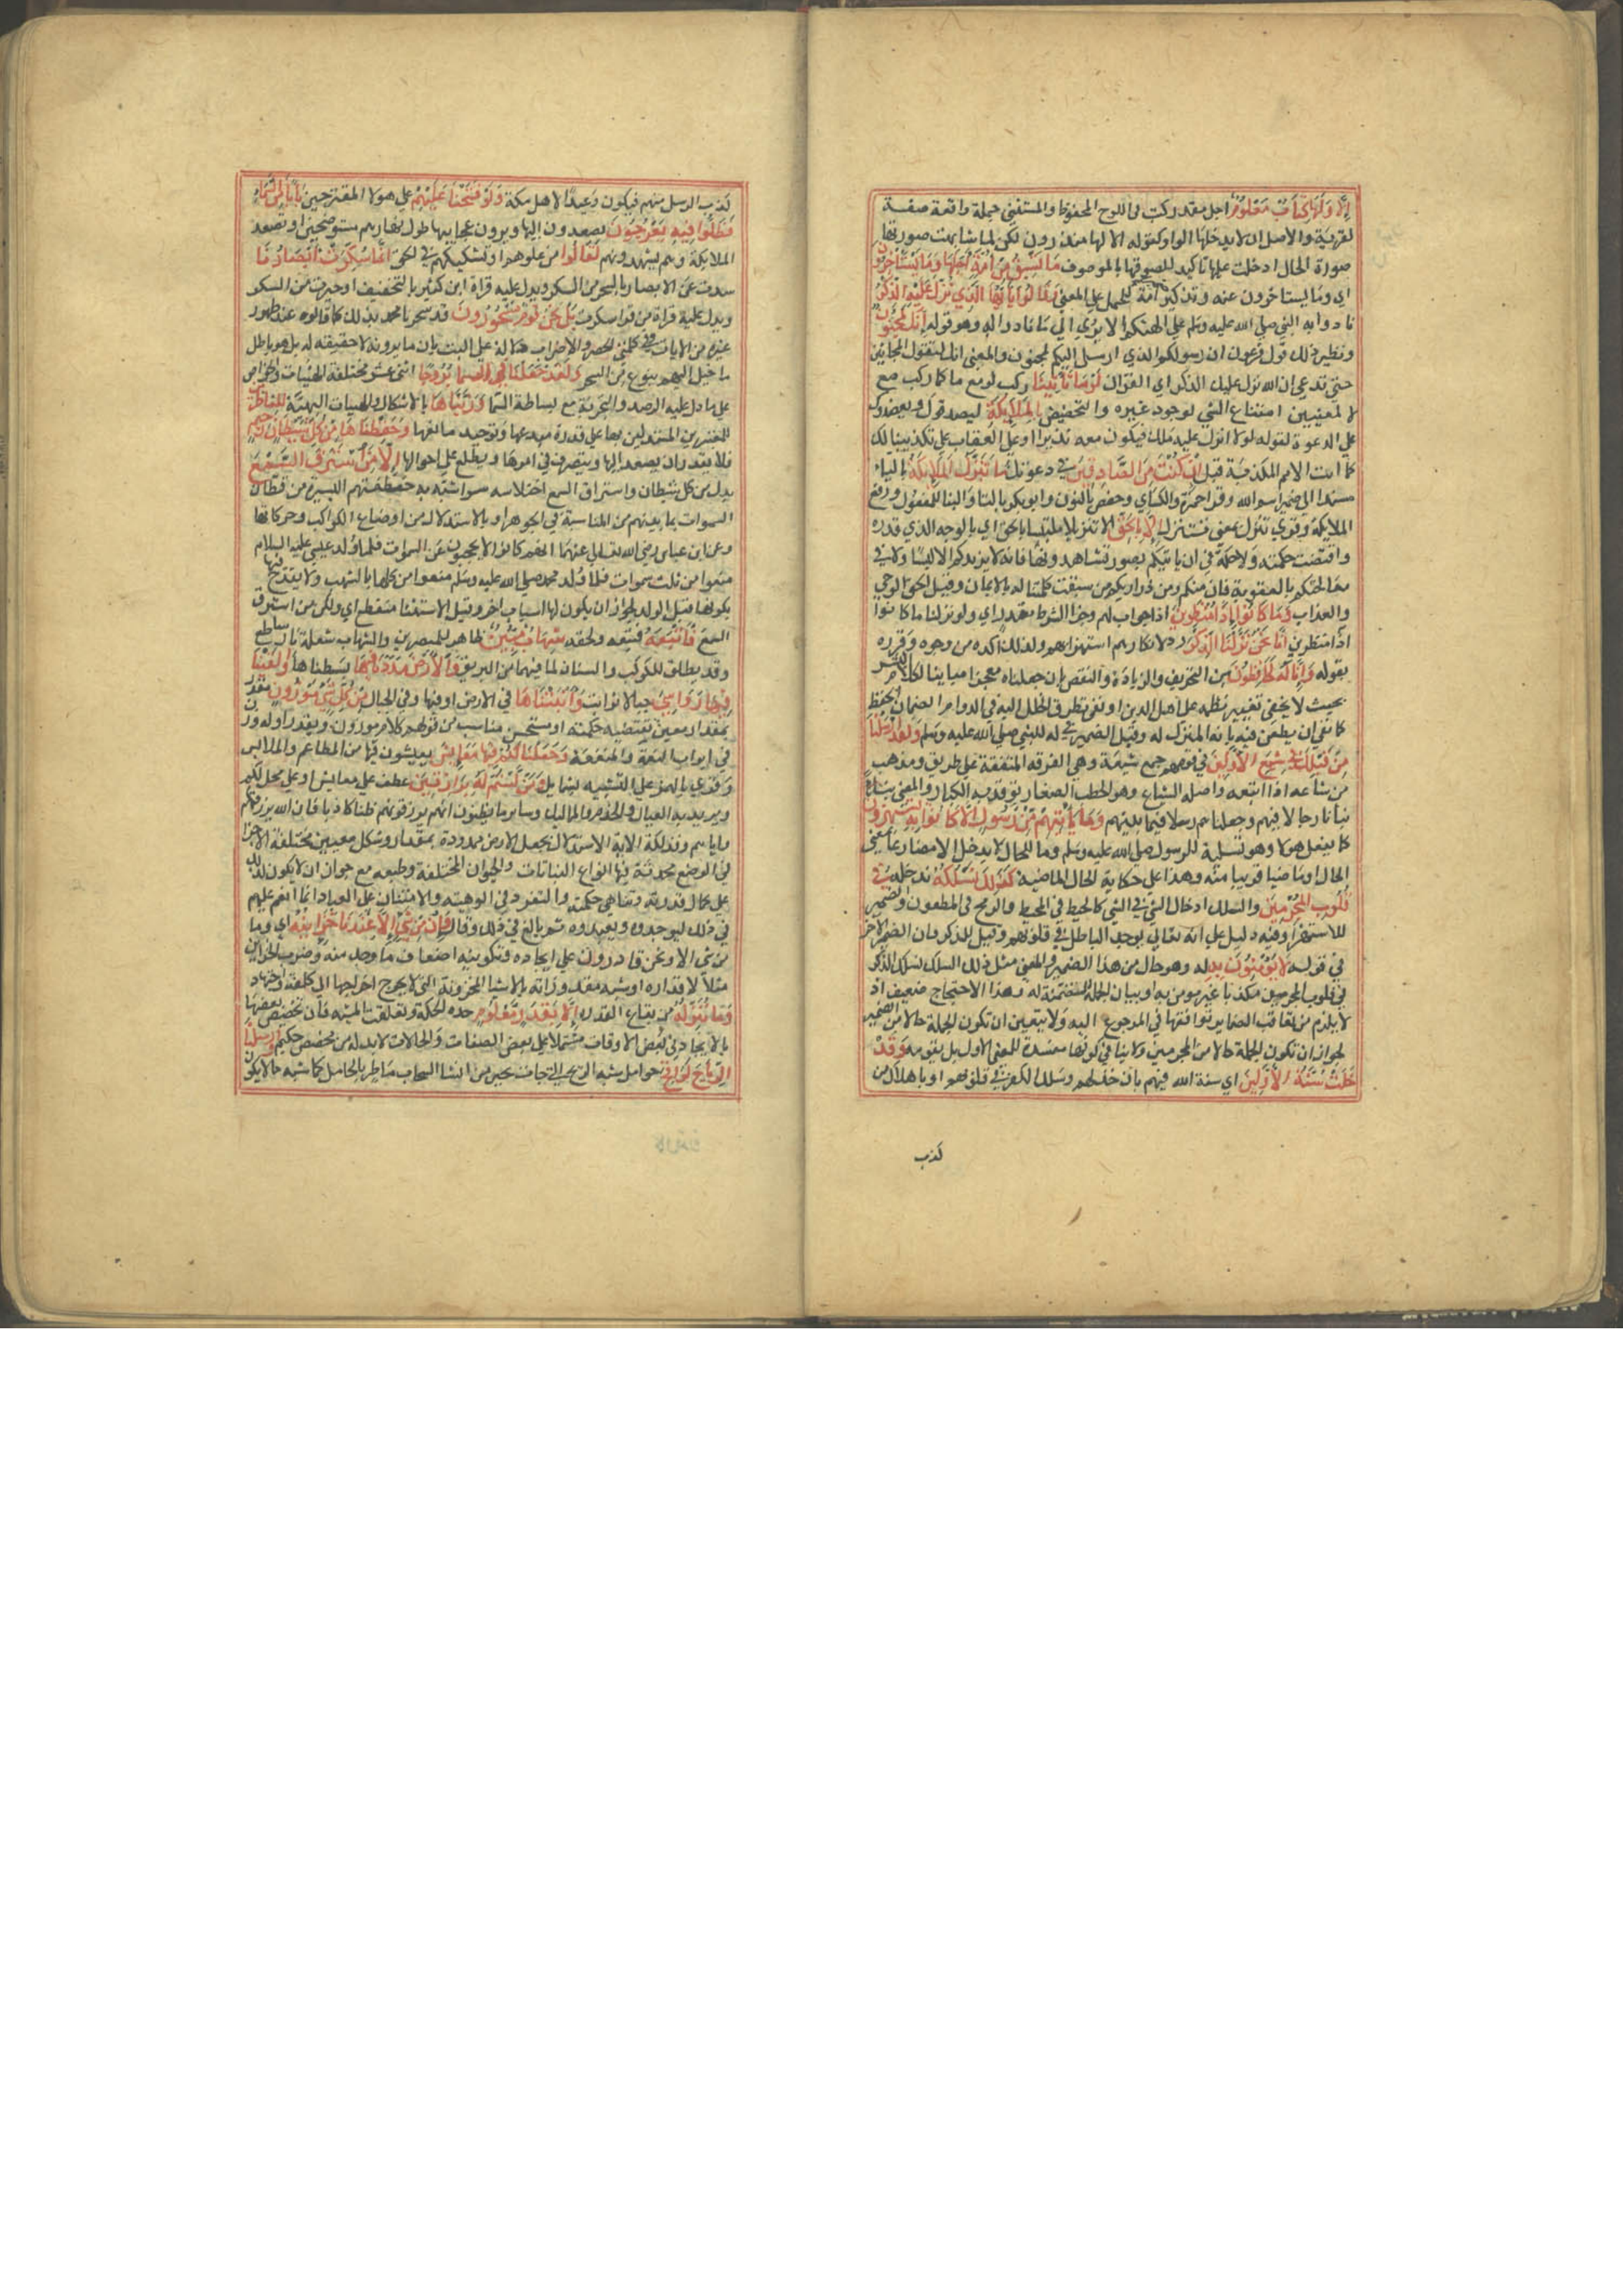 اِلَّا وَلَهَا كِتَابٌ مَعْلُومٌ اجل مقدر كتب فى اللوح المحفوظ والمستثنى جملة واقعة صفة
لقرية والاصل ان لا يدخلها الواو كقوله الا لها منذرون لكن لما شابهت صورتها
صورة الحال ادخلت عليها تاكيد للصوقها بالموصوف مَا تَسْبِقُ مِنْ اُمَّةٍ اَجَلَهَا وَمَا يَسْتَأْخِرُونَ
اى وما يستاخرون عنه وتذكير امة للحمل على المعنى وَقَالُوا يَا اَيُّهَا الَّذِى نُزِّلَ عَلَيْهِ الذِّكْرُ
نادوا به النبى صلى الله عليه وسلم على التهكم الا يرى الى ما نادوا له وهو قوله اِنَّكَ لَمَجْنُونٌ
ونظير ذلك قول فرعون ان رسولكم الذى ارسل اليكم لمجنون والمعنى انك لتقول المجانين
حتى تدعى ان الله نزل عليك الذكر اى القران لَوْمَا تَأْتِينَا ركب لو مع ما كما ركب مع
لا لمعنيين امتناع الشى لوجود غيره والتخضيض بِالْمَلَائِكَةِ ليصدقوك ويعضدوك
على الدعوة لقوله لولا انزل عليه ملك فيكون معه نذيرا او على العقاب على تكذيبنا لك
كما اتت الامم المكذبة قبل اِنْ كُنْتَ مِنَ الصَّادِقِينَ فى دعوتك مَا تَنَزَّلُ الْمَلَائِكَةُ بالياء
مسندا الى ضمير اسم الله وقرا حمزة والكسائ وحفص بالنون وابو بكر بالتا والبنا للمفعول ورفع
الملايكة وقرى تنزل بمعنى تتنزل اِلَّا بِالْحَقِّ الا تنزيلا ملتبسا بالحق اى بالوجه الذى قدره
واقتضت حكمته ولا حكمة فى ان ياتيكم بصور تشاهدونها فانه لا يزيدكم الا لبسا ولا فى
معالجتكم بالعقوبة فان منكم ومن ذراريكم من سبقت كلمتنا له بالايمان وقيل الحق الوحى
والعذاب وَمَا كَانُوا اِذًا مُنْظَرِينَ اذا جواب لهم وجزا الشرط مقدر اى ولو نزلنا ما كانوا
اذا منظرين اِنَّا نَحْنُ نَزَّلْنَا الذِّكْرَ رد لانكارهم استهزاهم ولذلك اكده من وجوه وقرره
بقوله وَاِنَّا لَهُ لَحَافِظُونَ من التحريف والزيادة والنقص بان جعلناه معجزا مباينا لكلام البشر
بحيث لا يخفى تغيير نظمه على اهل الدين او نفى تطرق الخلل اليه فى الدوام بضمان الحفظ
كما نفى ان يطعن فيه بانه المنزل له وقيل الضمير فى له للنبى صلى الله عليه وسلم وَلَقَدْ اَرْسَلْنَا
مِنْ قَبْلِكَ فِى شِيَعِ الْاَوَّلِينَ فى فرقهم جمع شيعة وهى الفرقه المتفقة على طريق ومذهب
من شاعه اذا اتبعه واصله الشياع وهو الحطب الصغار توقد به الكبار والمعنى
نبانا رجالا فيهم وجعلناهم رسلا فيما بينهم وَمَا يَأْتِيهِمْ مِنْ رَسُولٍ اِلَّا كَانُوا بِهِ يَسْتَهْزِؤُنَ
كما يفعل هولا وهو تسلية للرسول صلى الله عليه وسلم وما للحال لا يدخل الا مضارعا بمعنى
الحال او ماضيا قريبا منه وهذا على حكاية الحال الماضية كَذَلِكَ نَسْلُكُهُ ندخله فِى
قُلُوبِ الْمُجْرِمِينَ والسلك ادخال الشى فى الشى كالخيط فى المخيط والرمح فى المطعون والضمير
للاستهزا وفيه دليل على انه تعالى يوجد الباطل فى قلوبهم وقيل للذكر فان الضمير الاخر
فى قوله لَا يُؤْمِنُونَ بِهِ له وهو حال من هذا الضمير والمعنى مثل ذلك السلك نسلك الذكر
فى قلوب المجرمين مكذبا غير مومن به او بيان للجملة المتضمنة له وهذا الاحتجاج ضعيف اذ
لا يلزم من تعاقب الضماير توافقها فى المرجوع اليه ولا يتعين ان تكون الجملة حالا من الضمير
لجواز ان تكون الجملة حالا من المجرمين ولا ينافى كونها مفسدة للمعنى الاول بل يقويه وَقَدْ
خَلَتْ سُنَّةُ الْاَوَّلِينَ اى سنة الله فيهم بان خذلهم وسلك الكفر فى قلوبهم او باهلاك من
كذب
كذب الرسل منهم فيكون وعيدا لاهل مكة وَلَوْ فَتَحْنَا عَلَيْهِمْ على هولا المقترحين بَابًا مِنَ السَّمَاءِ
فَظَلُّوا فِيهِ يَعْرُجُونَ يصعدون اليها ويرون عجايبها طول نهارهم مستوضحين او تصعد
الملايكة وهم يشهدونهم لَقَالُوا من غلوهم او تشكيكهم فى الحق اِنَّمَا سُكِّرَتْ اَبْصَارُنَا
سدت عن الابصار بالسحر من السكر ويدل عليه قراة ابن كثير بالتخفيف او حيرت من السكر
ويدل عليه قراة من قرا سكرت بَلْ نَحْنُ قَوْمٌ مَسْحُورُونَ قد سحرنا محمد بذلك كما قالوه عند ظهور
غيره من الايات وفى كلمتى الحصر والاضراب دلالة على البت بان ما يرونه لا حقيقة له بل هو باطل
ما خيل اليهم بنوع من السحر وَلَقَدْ جَعَلْنَا فِى السَّمَاءِ بُرُوجًا اثنى عشر مختلفة الهيات والخواص
على ما دل عليه الرصد والتجربة مع بساطة السما وَزَيَّنَّاهَا بالاشكال والهيات البهية لِلنَّاظِرِينَ
المعتبرين المستدلين بها على قدرة مبدعها وتوحيد صانعها وَحَفِظْنَاهَا مِنْ كُلِّ شَيْطَانٍ رَجِيمٍ
فلا يقدر ان يصعد اليها ويتصرف فى امرها ويطلع على احوالها اِلَّا مَنِ اسْتَرَقَ السَّمْعَ
بدل من كل شيطان واستراق السمع اختلاسه سرا شبه به خطفتهم اليسيرة من قطان
السموات بما بينهم من المناسبة فى الجوهر او بالاستدلال من اوضاع الكواكب وحركاتها
وعن ابن عباس رضى الله تعالى عنهما انهم كانوا لا يحجبون عن السموات فلما ولد عيسى عليه السلام
منعوا من ثلث سموات فلما ولد محمد صلى الله عليه وسلم منعوا من كلها بالشهب ولا يقدح فيه
تكونها قبل المولد لجواز ان يكون لها اسباب اخر وقيل الاستثنا منقطع اى ولكن من استرق
السمع فَاَتْبَعَهُ فتبعه ولحقه شِهَابٌ مُبِينٌ ظاهر للمبصرين والشهاب شعلة نار ساطع
وقد يطلق للكوكب والسنان لما فيهما من البريق وَالْاَرْضَ مَدَدْنَاهَا بسطناها وَاَلْقَيْنَا
فِيهَا رَوَاسِىَ جبالا ثوابت وَاَنْبَتْنَا فِيهَا فى الارض او فيها وفى الجبال مِنْ كُلِّ شَىْءٍ مَوْزُونٍ مقدر
بمقدار معين تقتضيه حكمته او مستحسن مناسب من قولهم كلام موزون ويقدر اوله وزن
فى ابواب النعمة والمنفعة وَجَعَلْنَا لَكُمْ فِيهَا مَعَايِشَ يعيشون فيها من المطاعم والملابس
وقرى بالهمز على التشبيه بشمايل وَمَنْ لَسْتُمْ لَهُ بِرَازِقِينَ عطف على معايش او على محل لكم
ويريد به العيال والخدم والمماليك وساير ما يظنون انهم يرزقونهم ظنا كاذبا فان الله يرزقهم
واياهم وفذلكة الاية الاستدلال بجعل الارض ممدودة بمقدار وشكل معينين مختلفة الاجزا
فى الوضع محدثة فيها انواع النباتات والحيوان المختلفة وطبعه مع جواز ان لا يكون كذلك
على كمال قدرته وتناهى حكمته والتفرد فى الوهيته والامتنان على العباد بما انعم عليهم
فى ذلك ليوحدوه ويعبدوه ثم بالغ فى ذلك وقال وَاِنْ مِنْ شَىْءٍ اِلَّا عِنْدَنَا خَزَائِنُهُ اى وما
من شى الا ونحن قادرون على ايجاده وتكوينه اضعاف ما وجد منه وضرب الخزائن
مثلا لاقتداره او شبه مقدوراته بالاشيا المخزونة التى لا يحوج اخراجها الى كلفة واجتهاد
وَمَا نُنَزِّلُهُ من بقاع القدرة اِلَّا بِقَدَرٍ مَعْلُومٍ حده الحكمة وتعلقت المشية فان تخصيص بعضها
بالايجاد فى بعض الاوقات مشتملا على بعض الصفات والحالات لا بد له من مخصص حكيم وَاَرْسَلْنَا
الرِّيَاحَ لَوَاقِحَ حوامل شبه الريح التى جات بخير من انشا السحاب ماطر بالحامل كما شبه ما لا يكون